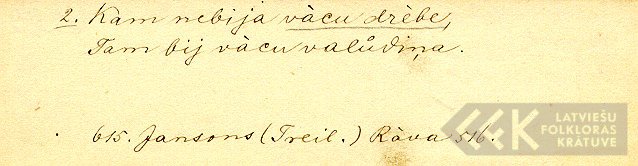 2. Kam nebija vàcu drèbe,
Tam bij vàcu valůdiņa.
615. Jansons (Treil.) Ràva 516.
LATVIEŠU
FOLKLORAS
KRĀTUVE